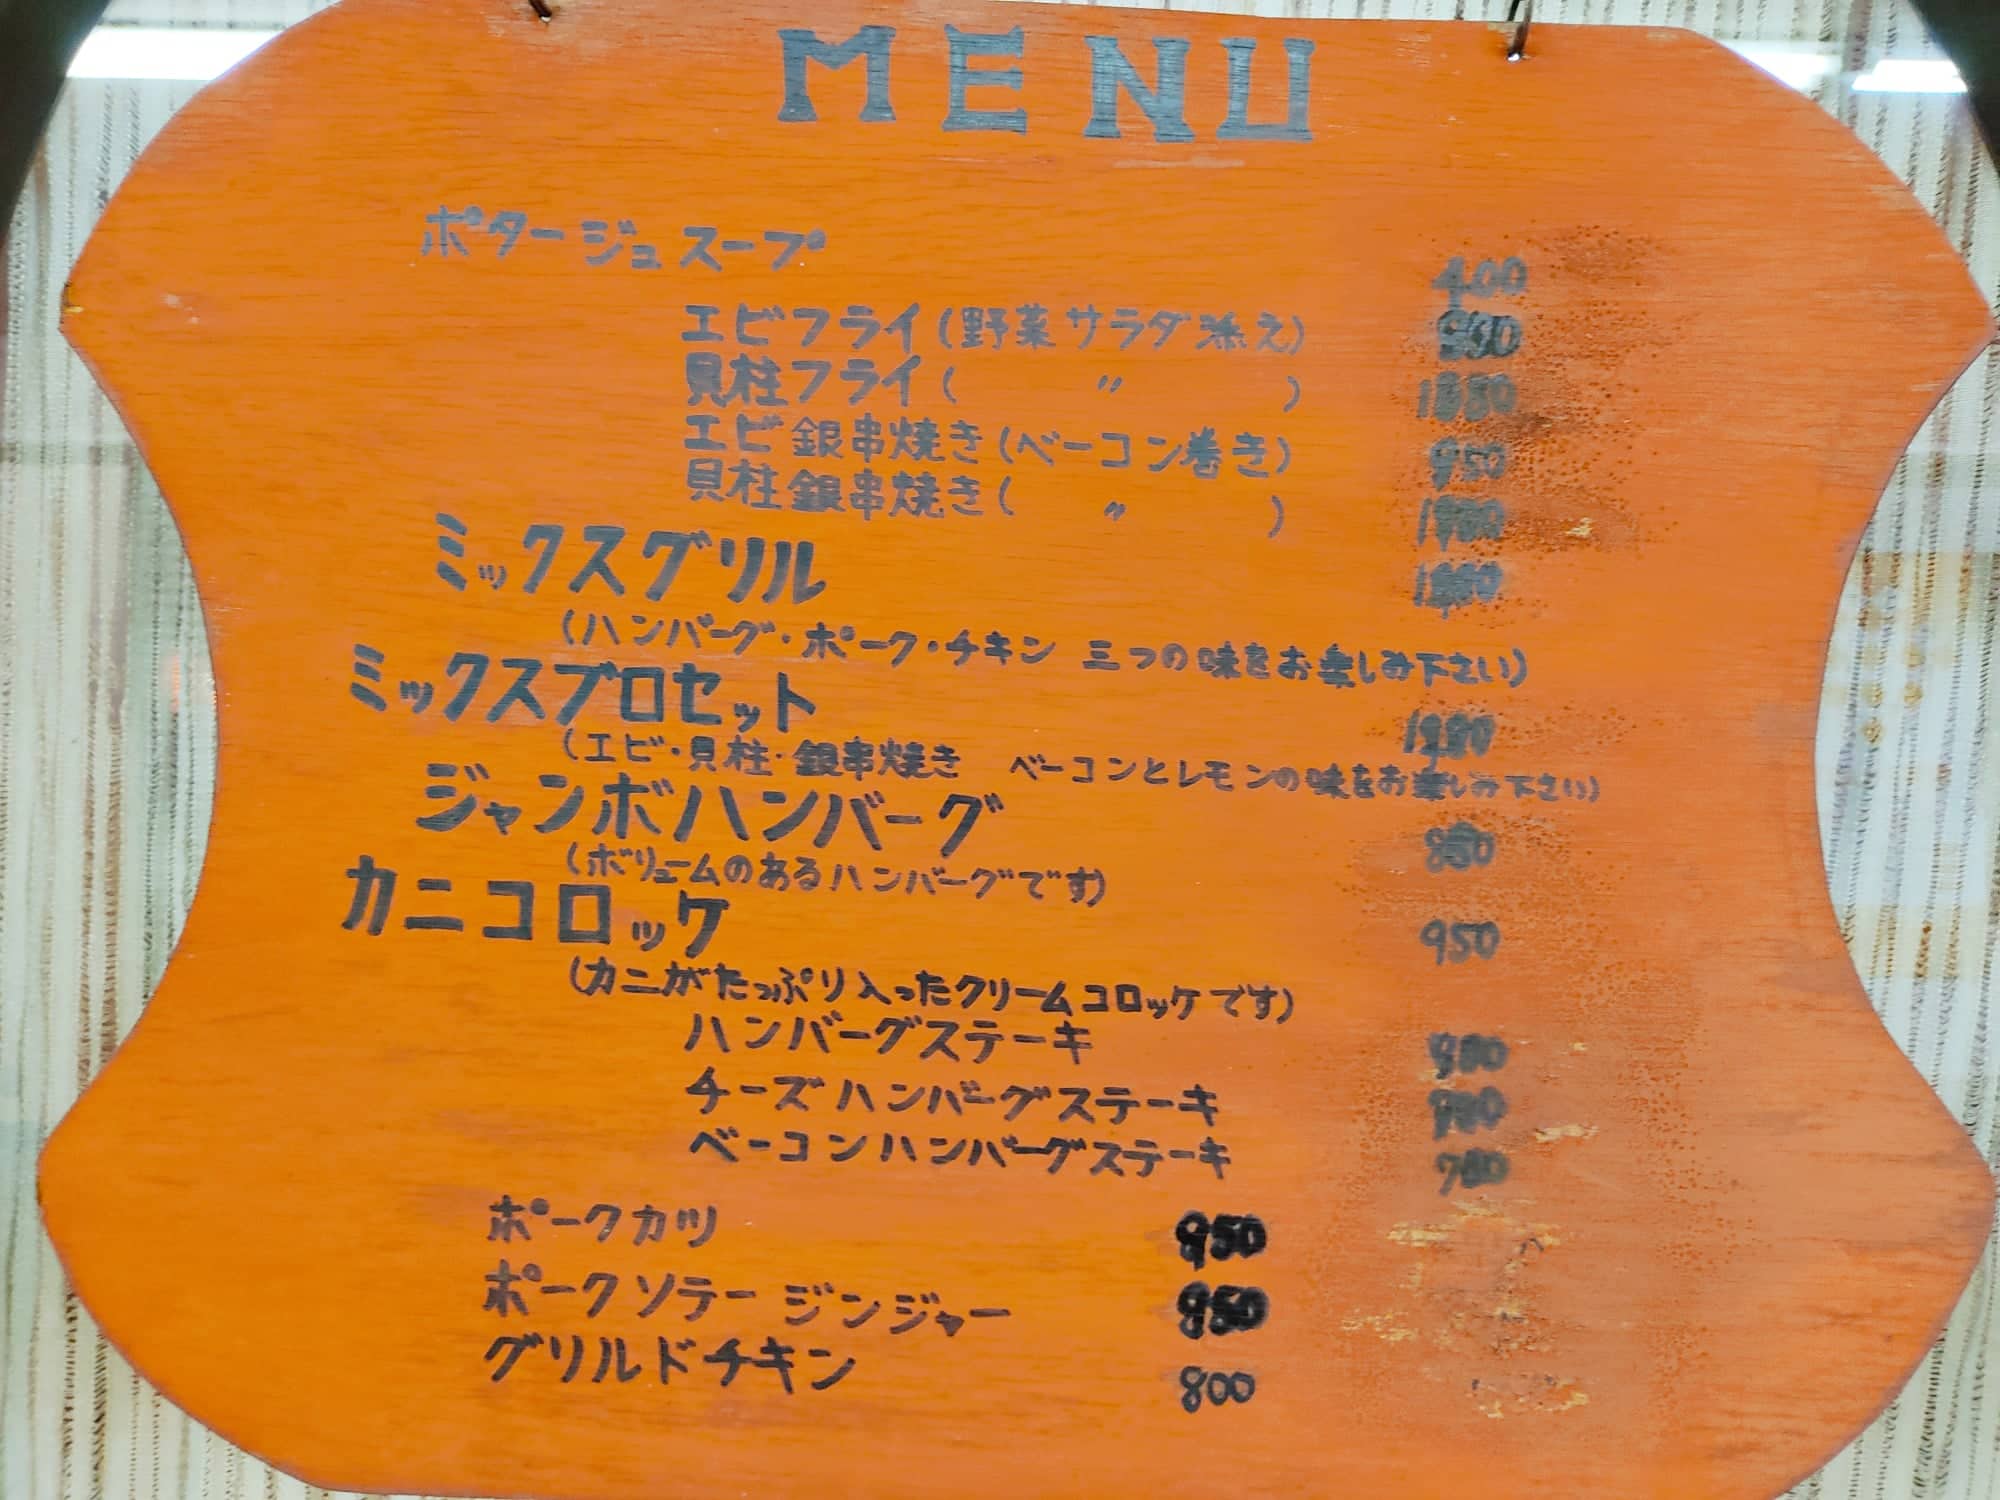 MENU
ポタージュスープ 400
エビフライ(野菜サラダ添え)
貝柱フライ( 〃 )
エビ銀串焼き(ベーコン巻き) 950
貝柱銀串焼き( 〃 )
ミックスグリル
(ハンバーグ・ポーク・チキン 三つの味をお楽しみ下さい)
ミックスブロセット
(エビ・貝柱・銀串焼き ベーコンとレモンの味をお楽しみ下さい)
ジャンボハンバーグ
(ボリュームのあるハンバーグです)
カニコロッケ 950
(カニがたっぷり入ったクリームコロッケです)
ハンバーグステーキ
チーズハンバーグステーキ
ベーコンハンバーグステーキ
ポークカツ 950
ポークソテー ジンジャー
グリルドチキン 800